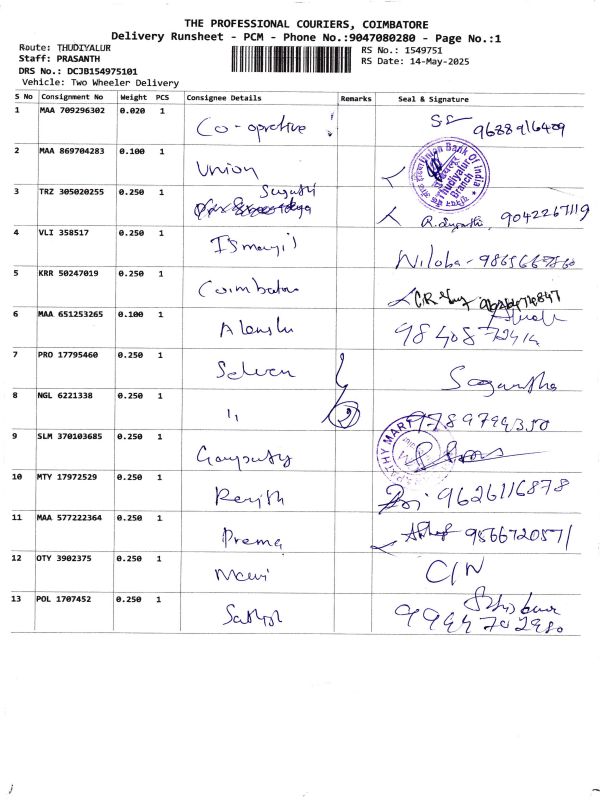 THE PROFESSIONAL COURIERS, COIMBATORE
Delivery Runsheet - PCM - Phone No.:9047080280 - Page No.:1
Route: THUDIYALUR
RS No.: 1549751
Staff: PRASANTH
RS Date: 14-May-2025
DRS No.: DCJB154975101
Vehicle: Two Wheeler Delivery
S No Consignment No Weight PCS Consignee Details Remarks Seal & Signature
1 MAA 709296302 0.020 1 Co-oprative SS 9688916409
2 MAA 869704283 0.100 1 Union Union Bank Of India Thudiyalur Branch
3 TRZ 305020255 0.250 1 9042267119
4 VLI 358517 0.250 1 Ismayil
5 KRR 50247019 0.250 1 Coimbatore
6 MAA 651253265 0.100 1
7 PRO 17795460 0.250 1 Selven
8 NGL 6221338 0.250 1 11 2 9789794350
9 SLM 370103685 0.250 1 MART
10 MTY 17972529 0.250 1 Renjith 9626116878
11 MAA 577222364 0.250 1 Prema 9566720571
12 OTY 3902375 0.250 1 C/N
13 POL 1707452 0.250 1 Sathish 9944702980